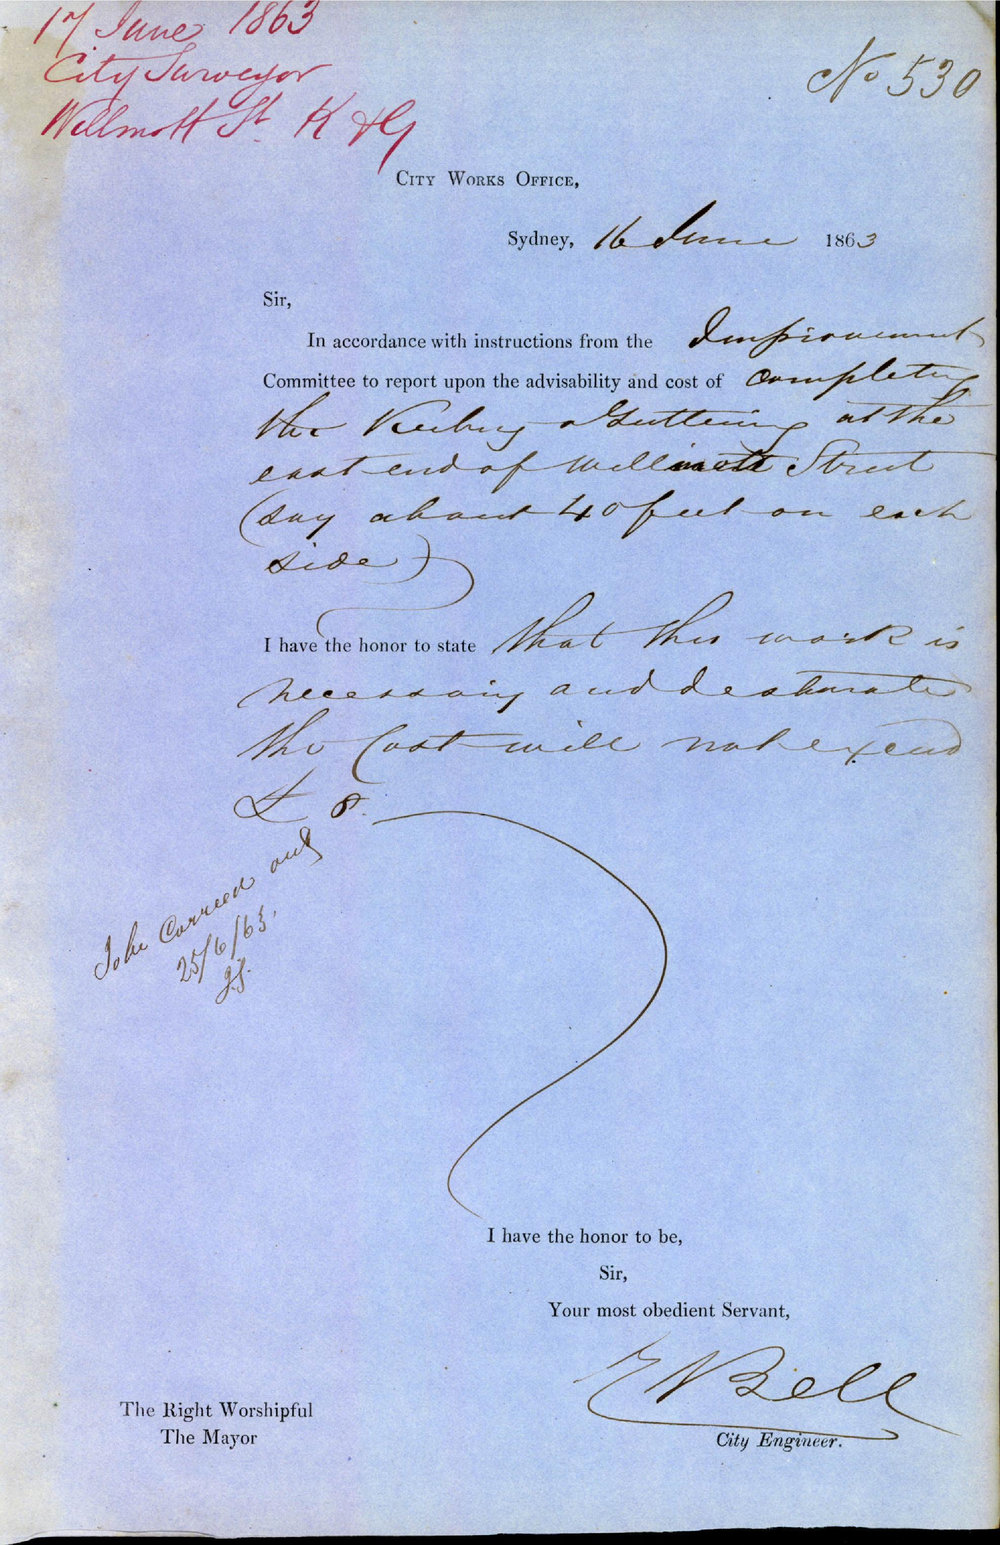 17 June 1863
City Surveyor
Willmott St. K & G
No 530
City Works Office,
Sydney, 16 June 1863
Sir,
In accordance with instructions from the Improvement
Committee to report upon the advisability and cost of completing
the Kerbing & Guttering at the
east end of Willmott Street
(say about 40 feet on each
side)
I have the honor to state that this work is
necessary and desirable
the Cost will not exceed
£ 8.
25/6/63.
I have the honor to be,
Sir,
Your most obedient Servant,
E Bell
City Engineer.
The Right Worshipful
The Mayor